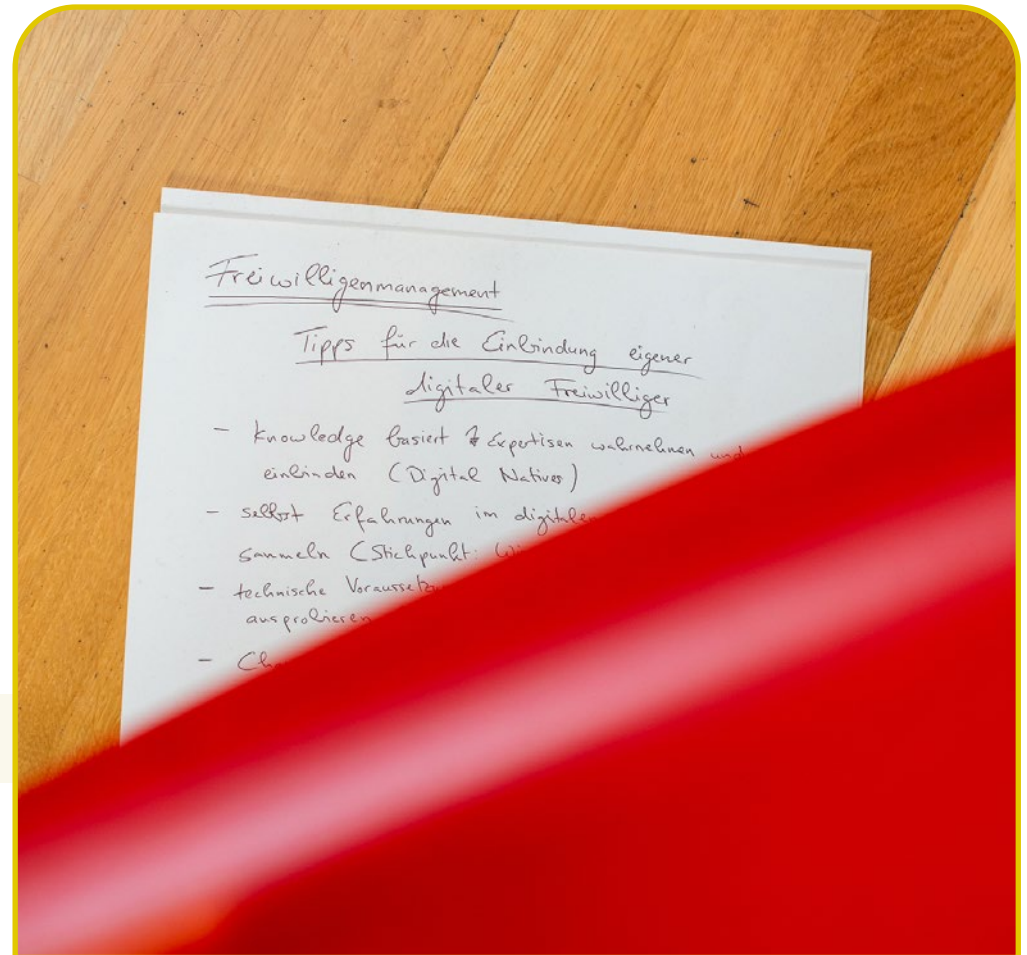 Freiwilligenmanagement
Tipps für die Einbindung eigener
digitaler Freiwilliger
- knowledge basiert Expertisen wahrnehmen und
einbinden (Digital Natives)
- selbst Erfahrungen im digitalen
sammeln (Stichpunkt:
- technische
ausprobieren
-